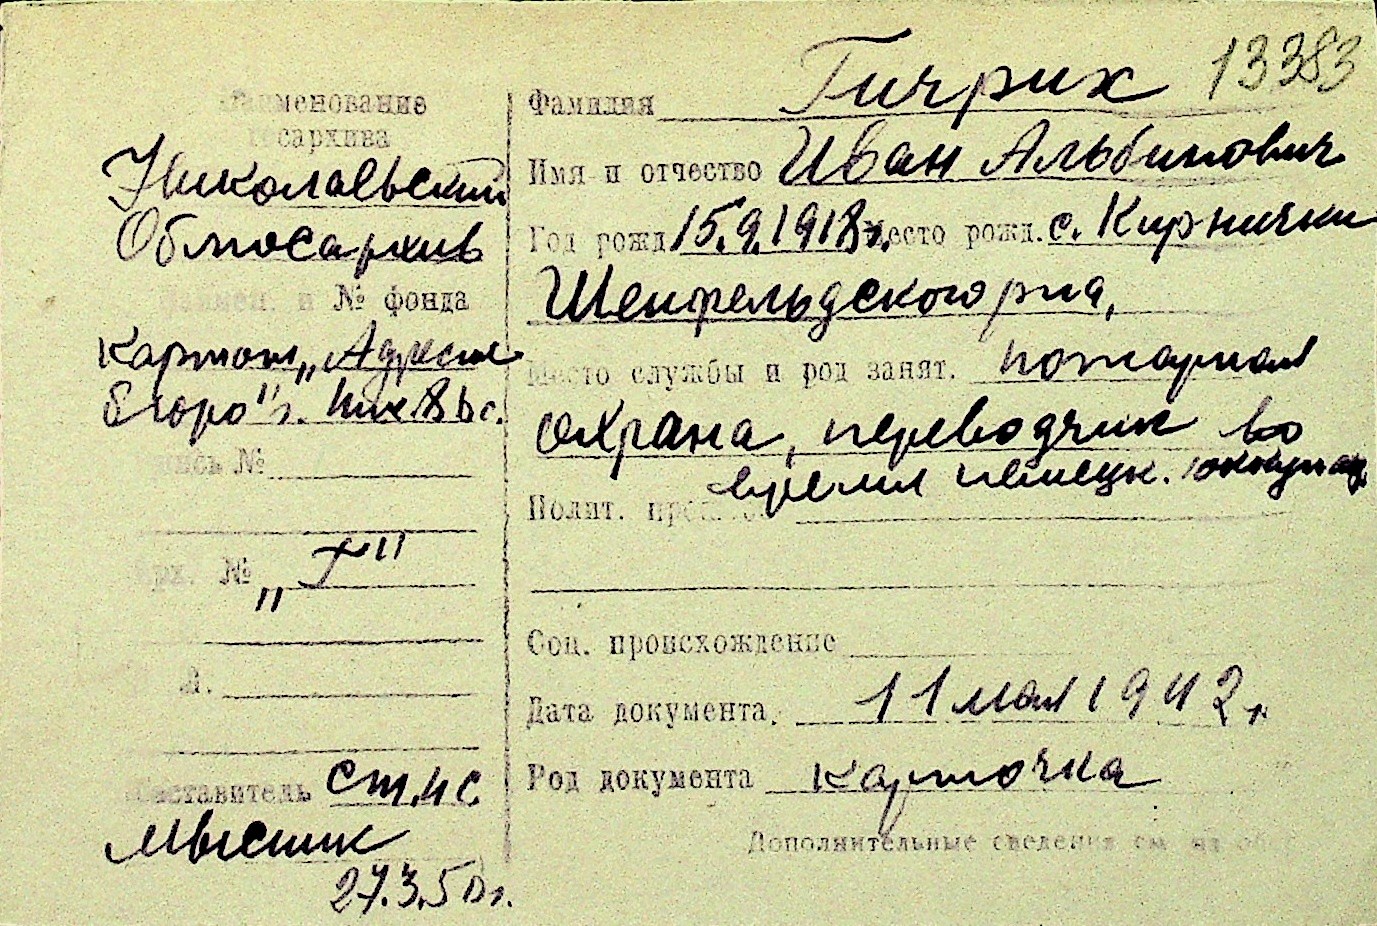 13383
Наименование
Госархива
Николаевский
Облгосархив
Наимен. и № фонда
Картот. „Адресное
бюро" г.
Опись №
Арх. № „Г"
Л.
Составитель ст. н с
Мысник
27.3.50 г.
Фамилия Гичрих
Имя и отчество Иван Альбинович
Год рожд. 15.9.1918г. Место рожд. с. Кирнички
Шенфельдского р-на,
Место службы и род занят. пожарная
охрана, переводчик во
время немецк. оккупац.
Полит.
Соц. происхождение
Дата документа. 11 мая 1942 г.
Род документа карточка
Дополнительные сведения см. на обор.